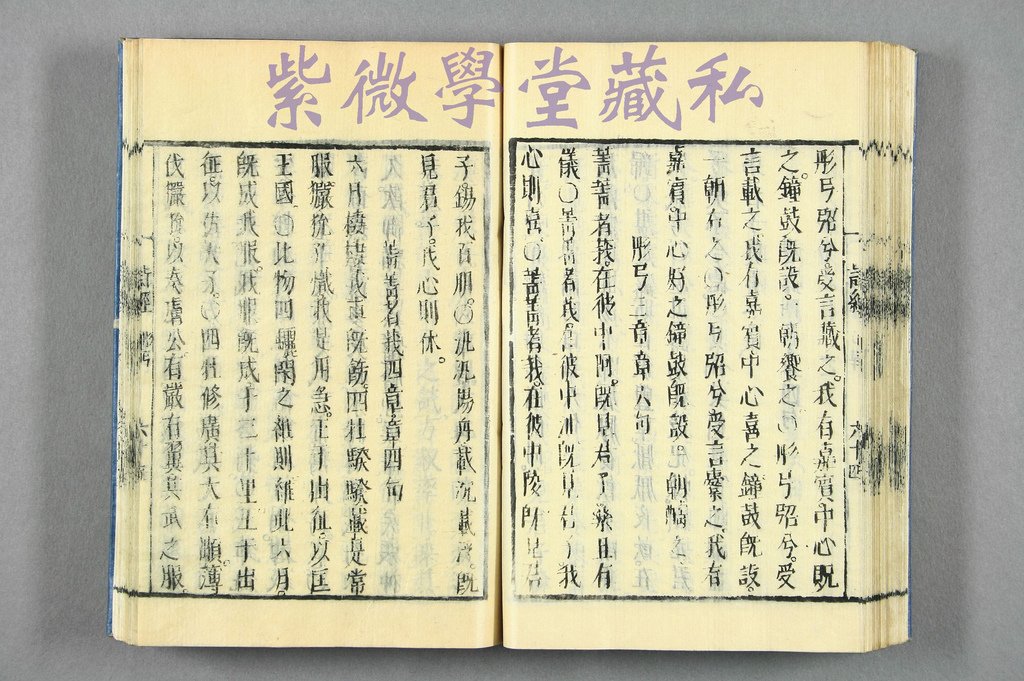 紫微學堂藏私
詩經
六十四
彤弓弨兮受言藏之。我有嘉賓中心貺
之。鐘鼓旣設。一朝饗之○彤弓弨兮。受
言載之我有嘉賓中心喜之鐘鼓旣設。
一朝右之○彤弓弨兮受言櫜之我有
嘉賓。中心好之鐘鼓旣設。一朝醻之
彤弓三章章六句
菁菁者莪。在彼中阿。旣見君子樂且有
儀○菁菁者莪。在彼中沚旣見君子我
心則喜。○菁菁者莪。在彼中陵旣見君
子錫我百朋。○汎汎楊舟載沉載浮。旣
見君子。我心則休。
菁菁者莪四章章四句
六月棲棲戎車旣飭。四牡騤騤載是常
服玁狁孔熾我是用急。王于出征。以匡
王國○比物四驪閑之維則維此六月。
旣成我服。我服旣成。于三十里王于出
征。以佐天子。○四牡修廣其大有顒。薄
伐玁狁。以奏膚公有嚴有翼共武之服
詩經